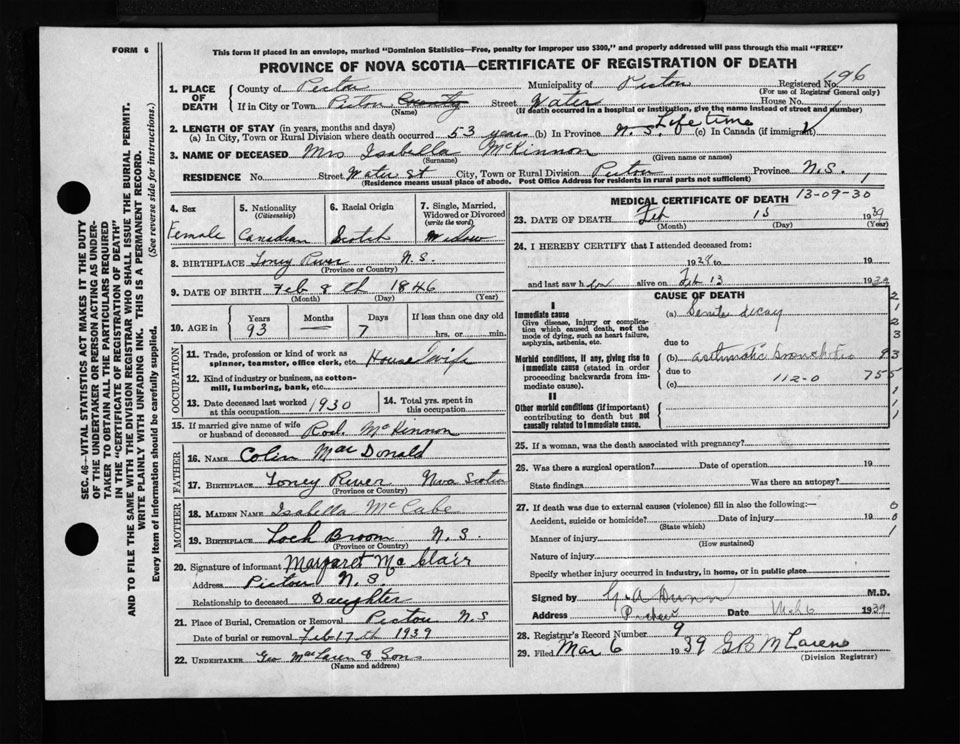 FORM 6
This form if placed in an envelope, marked "Dominion Statistics—Free, penalty for improper use $300," and properly addressed will pass through the mail "FREE"
PROVINCE OF NOVA SCOTIA—CERTIFICATE OF REGISTRATION OF DEATH
SEC. 46—VITAL STATISTICS ACT MAKES IT THE DUTY
OF THE UNDERTAKER OR PERSON ACTING AS UNDER-
TAKER TO OBTAIN ALL THE PARTICULARS REQUIRED
IN THE "CERTIFICATE OF REGISTRATION OF DEATH"
AND TO FILE THE SAME WITH THE DIVISION REGISTRAR WHO SHALL ISSUE THE BURIAL PERMIT.
WRITE PLAINLY WITH UNFADING INK. THIS IS A PERMANENT RECORD.
Every item of information should be carefully supplied. (See reverse side for instructions.)
1. PLACE OF DEATH
County of Pictou Municipality of Pictou Registered No. 696
(For use of Registrar General only)
If in City or Town Pictou County Street Water House No.
(Name) (If death occurred in a hospital or institution, give the name instead of street and number)
2. LENGTH OF STAY (in years, months and days)
(a) In City, Town or Rural Division where death occurred 53 years (b) In Province N.S. Life time (c) In Canada (if immigrant)
3. NAME OF DECEASED Mrs Isabella McKinnon
(Surname) (Given name or names)
RESIDENCE No. Street Water St City, Town or Rural Division Pictou Province N.S. 1
(Residence means usual place of abode. Post Office Address for residents in rural parts not sufficient)
4. Sex Female
5. Nationality (Citizenship) Canadian
6. Racial Origin Scotch
7. Single, Married, Widowed or Divorced (write the word) Widow
8. BIRTHPLACE Toney River N.S.
(Province or Country)
9. DATE OF BIRTH Feb 8th 1846
(Month) (Day) (Year)
10. AGE in Years 93 Months — Days 7 If less than one day old
hrs. or min.
OCCUPATION
11. Trade, profession or kind of work as
spinner, teamster, office clerk, etc. House Wife
12. Kind of industry or business, as cotton-
mill, lumbering, bank, etc.
13. Date deceased last worked at this occupation 1930
14. Total yrs. spent in this occupation
15. If married give name of wife
or husband of deceased Rod. McKinnon
FATHER
16. NAME Colin MacDonald
17. BIRTHPLACE Toney River Nova Scotia
(Province or Country)
MOTHER
18. MAIDEN NAME Isabella McCabe
19. BIRTHPLACE Loch Broom N.S.
(Province or Country)
20. Signature of informant Margaret McClair
Address Pictou N.S.
Relationship to deceased Daughter
21. Place of Burial, Cremation or Removal Pictou N S
Date of burial or removal Feb 17th 1939
22. UNDERTAKER Geo MacLaren & Son
(Name and address)
MEDICAL CERTIFICATE OF DEATH 13-09-30
23. DATE OF DEATH Feb 15 1939
(Month) (Day) (Year)
24. I HEREBY CERTIFY that I attended deceased from:
19 to 19
and last saw h alive on Feb 13 1939
CAUSE OF DEATH
I
Immediate cause
Give disease, injury or complica-
tion which caused death, not the
mode of dying, such as heart failure,
asphyxia, asthenia, etc.
(a) Senile decay
due to
Morbid conditions, if any, giving rise to
immediate cause (stated in order
proceeding backwards from im-
mediate cause).
(b) asthmatic bronchitis
due to
(c) 112-0 755
II
Other morbid conditions (if important)
contributing to death but not
causally related to immediate cause.
25. If a woman, was the death associated with pregnancy?
26. Was there a surgical operation? Date of operation 19
State findings Was there an autopsy?
27. If death was due to external causes (violence) fill in also the following:—
Accident, suicide or homicide? Date of injury 19
(State which)
Manner of injury
(How sustained)
Nature of injury
Specify whether injury occurred in industry, in home, or in public place
Signed by G A Dunn M.D.
Address Date Mch 6 1939
28. Registrar's Record Number 9
29. Filed Mar 6 1939 G B McLaren
(Division Registrar)